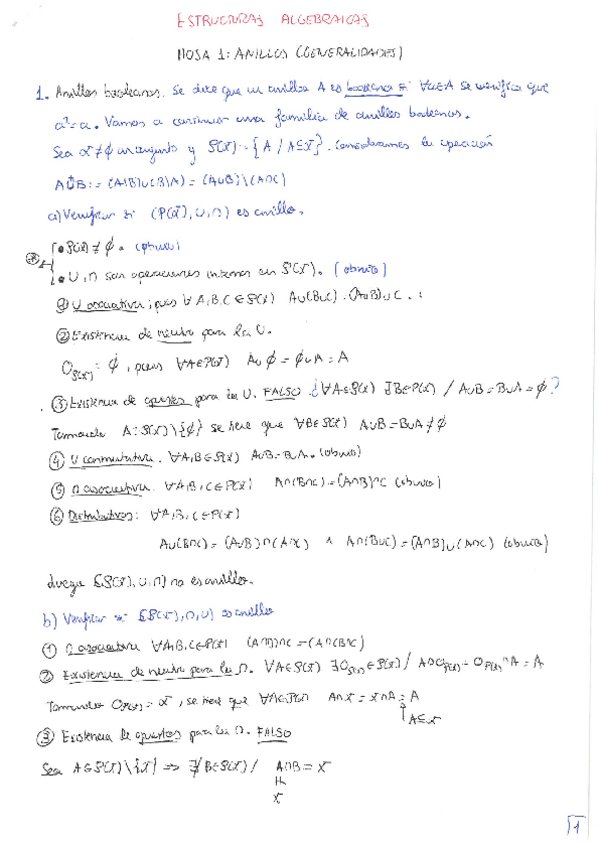 ESTRUCTURAS ALGEBRAICAS
HOJA 1: ANILLOS (GENERALIDADES)
1. Anillos booleanos. Se dice que un anillo A es booleano si ∀a∈A se verifica que
a²=a. Vamos a continuar una familia de anillos booleanos.
Sea X≠∅ un conjunto y P(X)={A / A⊆X}. Consideramos la operación
:= (A\B)∪(B\A) = (A∪B)\(A∩C)
a) Verificar si (P(X),∪,∩) es anillo.
• P(X)≠∅. (obvio)
• ∪,∩ son operaciones internas en P(X). (obvio)
① ∪ asociativa, pues ∀A,B,C∈P(X) A∪(B∪C)=(A∪B)∪C.
② Existencia de neutro para la ∪.
O_P(X) = ∅, pues ∀A∈P(X) A∪∅=∅∪A=A
③ Existencia de opuestos para la ∪. FALSO ¿∀A∈P(X) ∃B∈P(X) / A∪B=B∪A=∅?
Tomando A∈P(X)\{∅} se tiene que ∀B∈P(X) A∪B=B∪A≠∅
④ ∪ conmutativa. ∀A,B∈P(X) A∪B=B∪A. (obvio)
⑤ ∩ asociativa. ∀A,B,C∈P(X) A∩(B∩C)=(A∩B)∩C (obvio)
⑥ Distributivas: ∀A,B,C∈P(X)
A∪(B∩C)=(A∪B)∩(A∪C) ∧ A∩(B∪C)=(A∩B)∪(A∩C) (obvio)
Luego (P(X),∪,∩) no es anillo.
b) Verificar si (P(X),∩,∪) es anillo
① ∩ asociativa ∀A,B,C∈P(X) (A∩B)∩C=(A∩(B∩C)
② Existencia de neutro para la ∩. ∀A∈P(X) ∃O_P(X)∈P(X) / A∩O_P(X)=O_P(X)∩A=A
Tomando O_P(X)=X, se tiene que ∀A∈P(X) A∩X=X∩A=A
A⊆X
③ Existencia de opuestos para la ∩. FALSO
Sea A∈P(X)\{X} ⇒ ∄B∈P(X) / A∩B=X
X
1